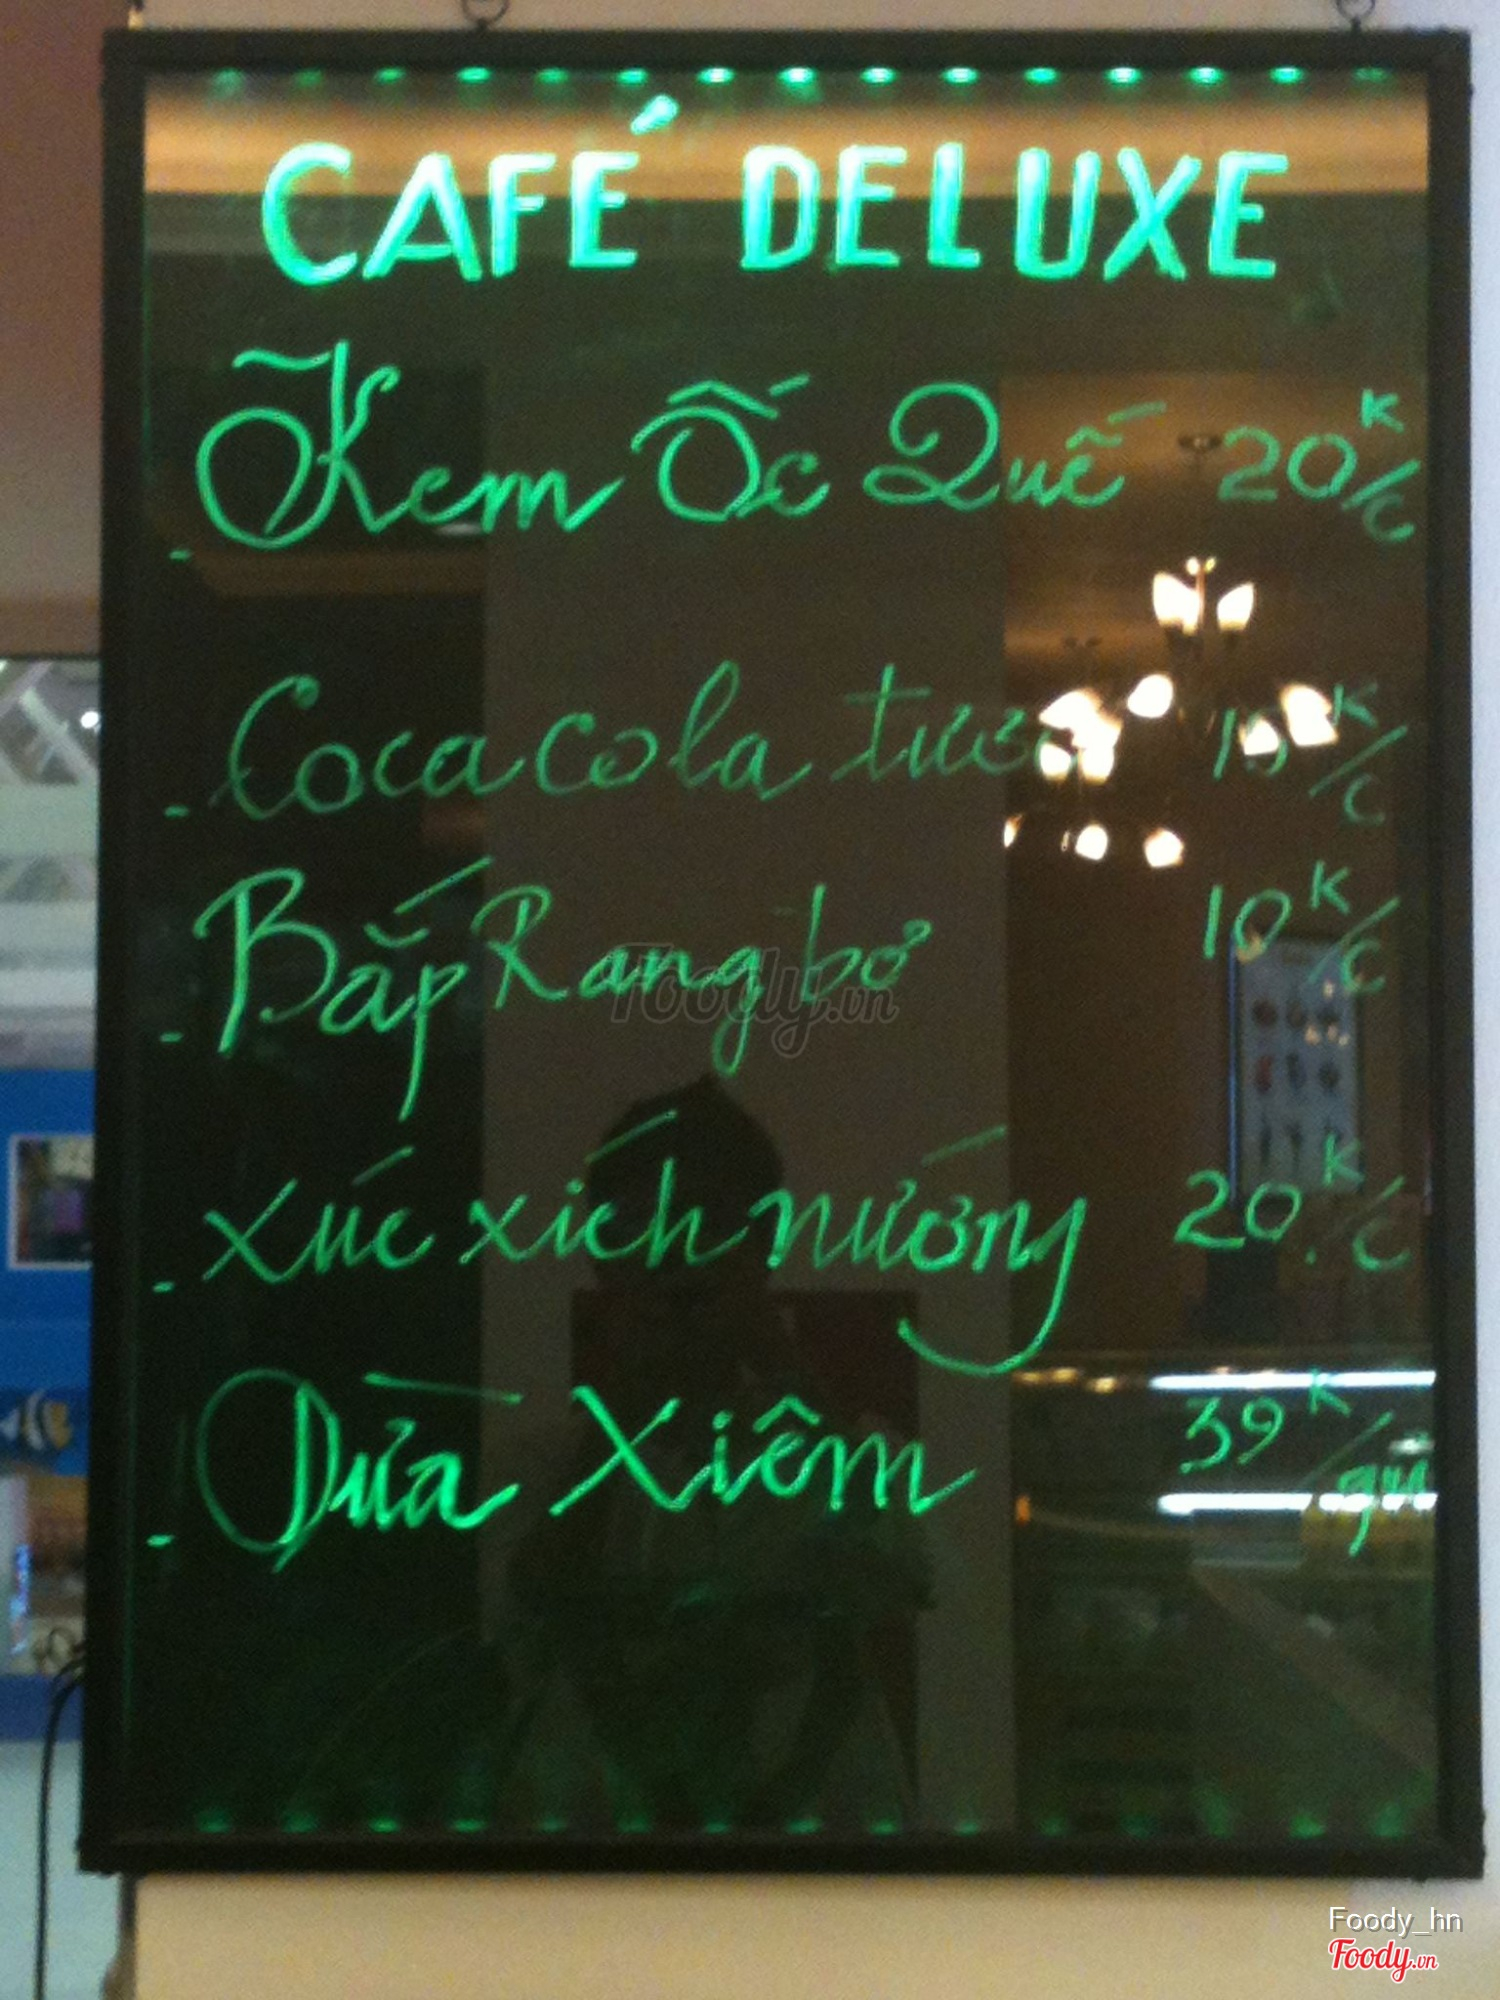 CAFÉ DELUXE
- Kem Ốc Quế 20K/c
- Coca cola tươi K/c
- Bắp Rang bơ 10K/c
- xúc xích nướng 20K/c
- Dừa Xiêm 39K/quả
Foody.vn
Foody_hn
Foody.vn